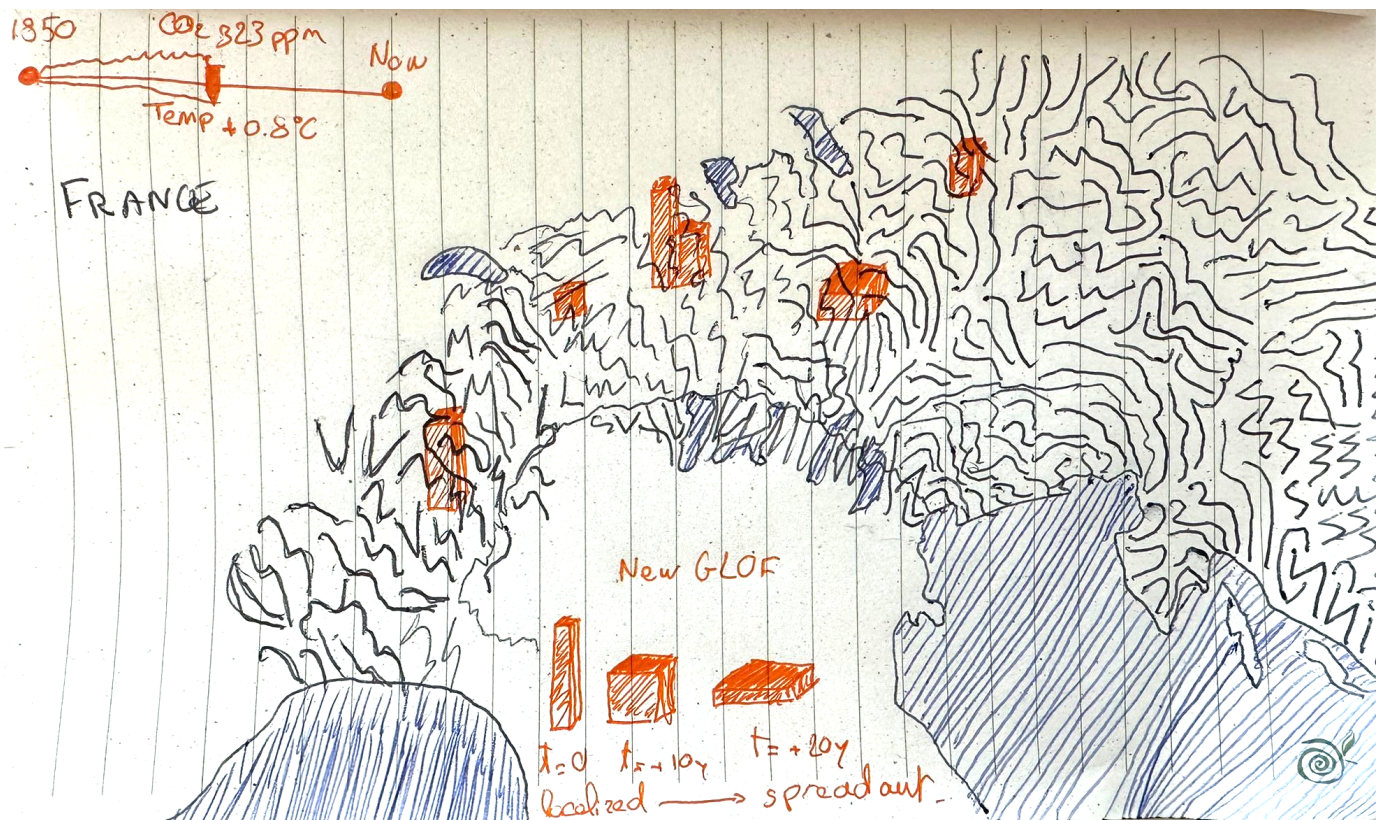 1850
CO2 323 ppm
Now
Temp + 0.8°C
FRANCE
New GLOF
t=0
t=+10y
t=+20y
localized → spread out